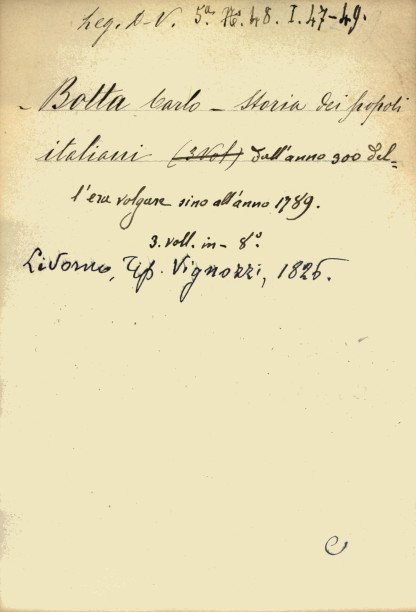 Leg. D-V. 5ª N. 48. I. 47-49.
- Botta Carlo - Storia dei popoli
italiani (3 Vol) dall'anno 300 del-
l'era volgare sino all'anno 1789.
3. voll. in - 8°.
Livorno, Tip. Vignozzi, 1826.
C